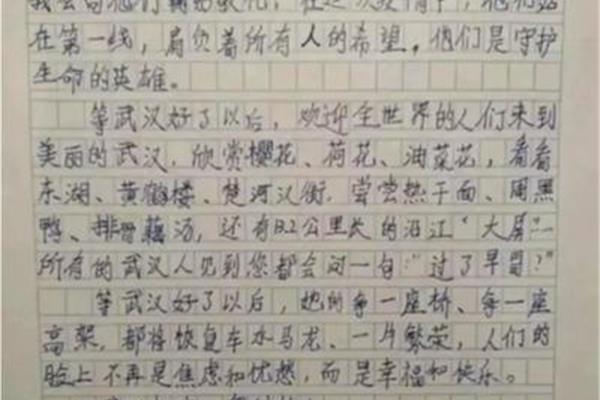 在第一线，肩负着所有人的希望。他们是守护
生命的英雄。
等武汉好了以后，欢迎全世界的人们来到
美丽的武汉，欣赏樱花、荷花、油菜花，看看
东湖、黄鹤楼、楚河汉街，尝尝热干面、周黑
鸭、排骨藕汤，还有13.2公里长的沿江“大屏”…
所有的武汉人见到您都会问一句：“过了早冒？”
等武汉好了以后，她的每一座桥、每一座
高架，都将恢复车水马龙、一片繁荣，人们的
脸上不再是焦虑和忧愁，而是幸福和快乐。